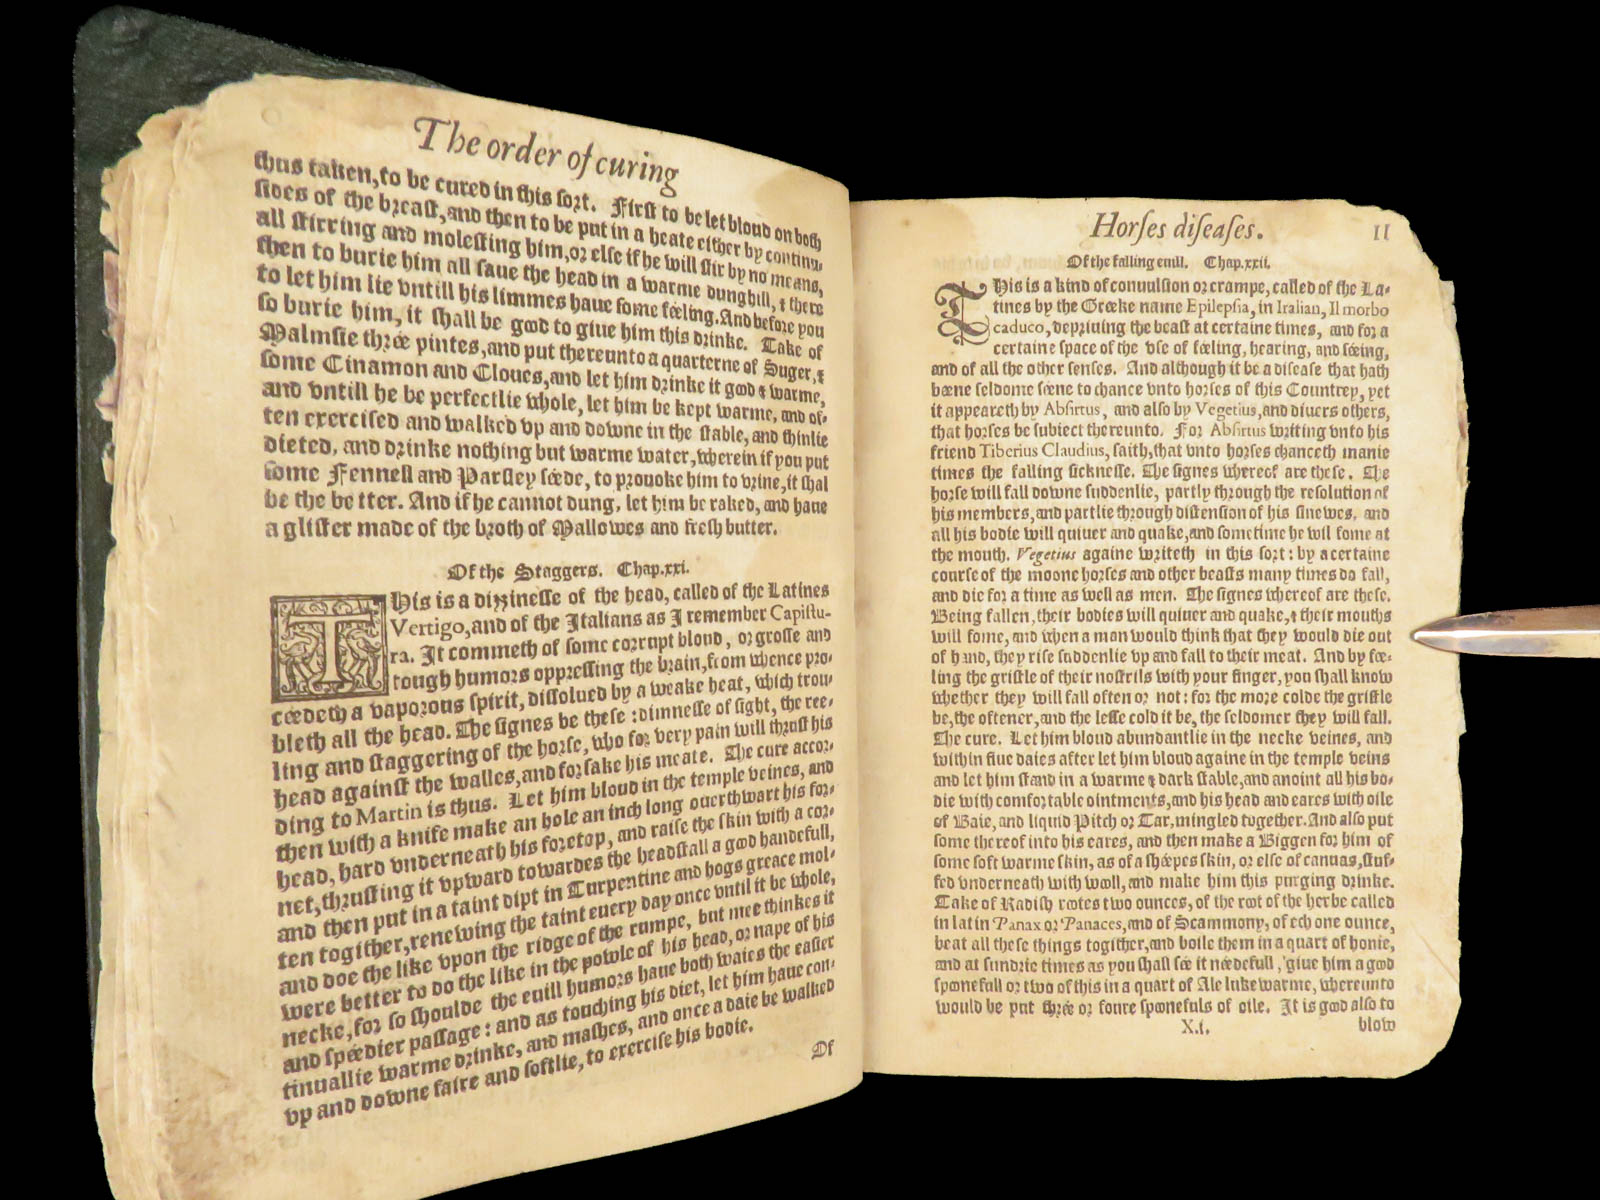 The order of curing
thus taken, to be cured in this sort. First to be let bloud on both
sides of the breast, and then to be put in a heate either by continu-
all stirring and molesting him, or else if he will stir by no means,
then to burie him all saue the head in a warme dunghill, & there
to let him lie vntill his limmes haue some feeling. And before you
so burie him, it shall be good to giue him this drinke. Take of
Malmsie three pintes, and put thereunto a quarterne of Suger, &
some Cinamon and Cloues, and let him drinke it good & warme,
and vntill he be perfectlie whole, let him be kept warme, and of-
ten exercised and walked vp and downe in the stable, and thinlie
dieted, and drinke nothing but warme water, wherein if you put
some Fennell and Parsley seede, to prouoke him to vrine, it shal
be the better. And if he cannot dung, let him be raked, and haue
a glister made of the broth of Mallowes and fresh butter.
Of the Staggers. Chap.xxi.
THis is a dizzinesse of the head, called of the Latines
Vertigo, and of the Italians as I remember Capistu-
ra. It commeth of some corrupt bloud, or grosse and
tough humors oppressing the brain, from whence pro-
ceedeth a vaporous spirit, dissolued by a weake heat, which trou-
bleth all the head. The signes be these: dimnesse of sight, the ree-
ling and staggering of the horse, who for very pain will thrust his
head against the walles, and forsake his meate. The cure accor-
ding to Martin is thus. Let him bloud in the temple veines, and
then with a knife make an hole an inch long ouerthwart his for-
head, hard vnderneath his foretop, and raise the skin with a cor-
net, thrusting it vpward towardes the headstall a good handefull,
and then put in a taint dipt in Turpentine and hogs greace mol-
ten togither, renewing the taint euery day once vntil it be whole,
and doe the like vpon the ridge of the rumpe, but mee thinkes it
were better to do the like in the powle of his head, or nape of his
necke, for so shoulde the euill humors haue both waies the easier
and speedier passage: and as touching his diet, let him haue con-
tinuallie warme drinke, and mashes, and once a daie be walked
vp and downe faire and softlie, to exercise his bodie.
Of
Horses diseases. 11
Of the falling euill. Chap.xxii.
THis is a kind of conuulsion or crampe, called of the La-
tines by the Greeke name Epilepsia, in Iralian, Il morbo
caduco, depriuing the beast at certaine times, and for a
certaine space of the vse of feeling, hearing, and seeing,
and of all the other senses. And although it be a disease that hath
beene seldome seene to chance vnto horses of this Countrey, yet
it appeareth by Absirtus, and also by Vegetius, and diuers others,
that horses be subiect thereunto. For Absirtus writing vnto his
friend Tiberius Claudius, saith, that vnto horses chanceth manie
times the falling sicknesse. The signes whereof are these. The
horse will fall downe suddenlie, partly through the resolution of
his members, and partlie through distension of his sinewes, and
all his bodie will quiuer and quake, and sometime he wil fome at
the mouth. Vegetius againe writeth in this sort: by a certaine
course of the moone horses and other beasts many times do fall,
and die for a time as well as men. The signes whereof are these.
Being fallen, their bodies will quiuer and quake, & their mouths
will fome, and when a man would think that they would die out
of hand, they rise suddenlie vp and fall to their meat. And by fee-
ling the gristle of their nostrils with your finger, you shall know
whether they will fall often or not: for the more colde the gristle
be, the oftener, and the lesse cold it be, the seldomer they will fall.
The cure. Let him bloud abundantlie in the necke veines, and
within fiue daies after let him bloud againe in the temple veins
and let him stand in a warme & dark stable, and anoint all his bo-
die with comfortable ointments, and his head and eares with oile
of Baie, and liquid Pitch or Tar, mingled together. And also put
some thereof into his eares, and then make a Biggen for him of
some soft warme skin, as of a sheepes skin, or else of canuas, stuf-
fed vnderneath with wooll, and make him this purging drinke.
Take of Radish rootes two ounces, of the root of the herbe called
in latin Panax or Panaces, and of Scammony, of ech one ounce,
beat all these things togither, and boile them in a quart of honie,
and at sundrie times as you shall see it needefull, giue him a good
spoonefull or two of this in a quart of Ale lukewarme, whereunto
would be put three or foure spoonefuls of oile. It is good also to
X.i. blow